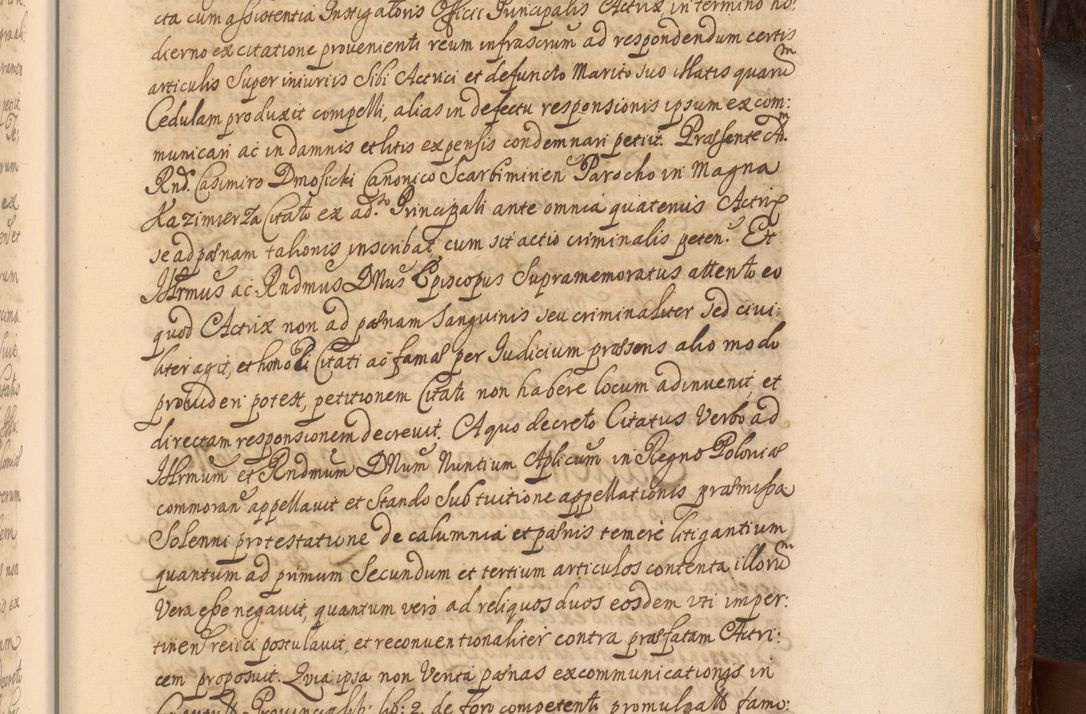 cta cum assistentia Instigatoris Officii Principalis Actrix in termino ho:
dierno ex citatione provenienti reum infrascrum ad respondendum certis
articulis super iniuriis Sibi Actrici et defuncto Marito suo illatis quarum
Cedulam produxit compelli, alias in defectu responsionis ipsum excom:
municari ac in damnis et litis expensis condemnari petiit. Præsente A.
Rnd. Casimiro Dmosicki Canonico Scarbimirien Parocho in Magna
Kazimierza Citato ex ad. Principali ante omnia quatenus Actrix
se ad pænam talionis inscribat, cum sit actio criminalis peten. Et
Illrmus ac Rndmus DNus Episcopus Supramemoratus attento eo
quod Actrix non ad pænam sanguinis seu criminaliter sed civi:
liter agit, et hono Citati ac famæ per Judicium præsens alio modo
provideri potest, petitionem Citati non habere locum adinvenit et
directam responsionem decrevit. A quo decreto Citatus verbo ad
Illrmum et Rndmum DNum Nuntium Aplicum in Regno Poloniæ
commoran appellavit et stando sub tuitione appellationis præmissa
Solenni protestatione de calumnia et pænis temere litigantium
quantum ad primum Secundum et tertium articulos contenta illorum
Vera esse negavit, quantum vero ad reliquos duos eosdem uti imper:
tinen reiici postulavit, et reconventionaliter contra præfatam Actri:
cem proposuit. Quia ipsa non Verita pænas excommunicationis in
Provincial lib: 2. de foro competenti promulgatt famo: